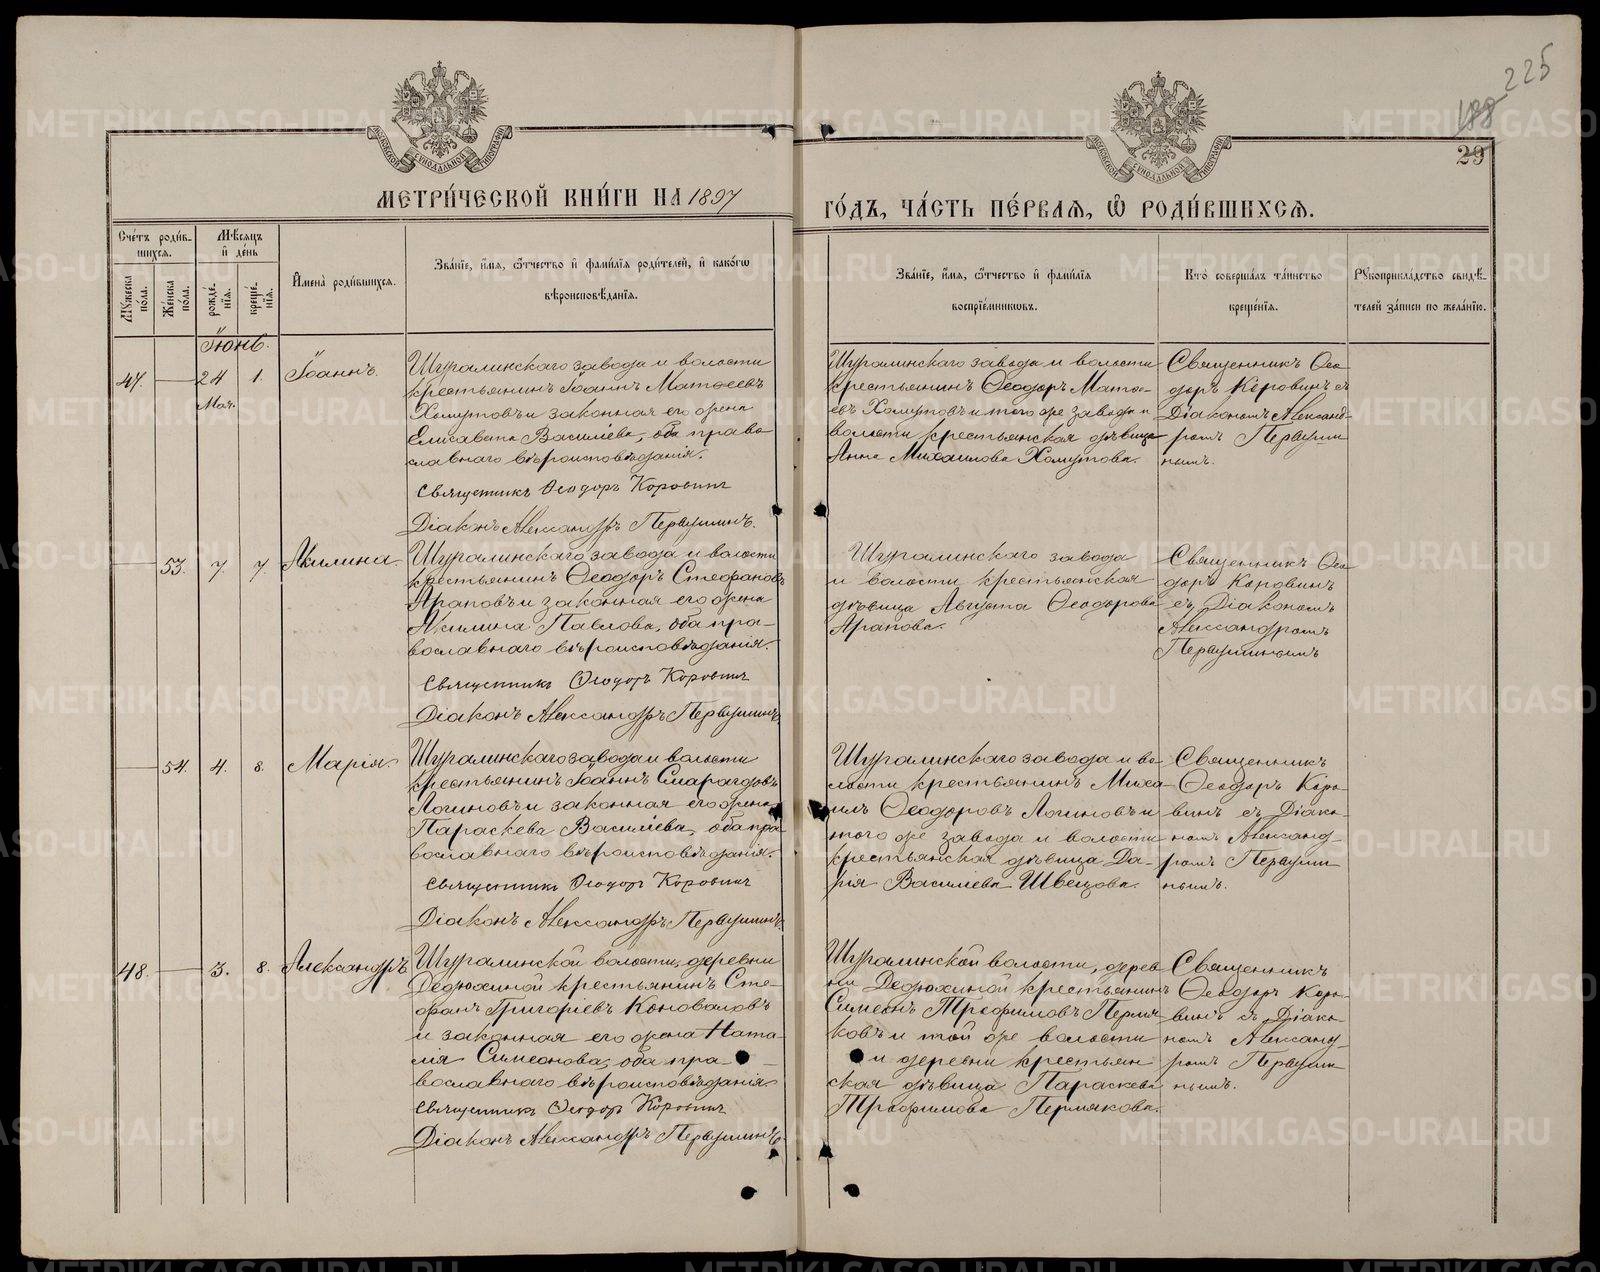 225
188
29
МЕТРИ́ЧЕСКОЙ КНИ́ГИ НА 1897
ГО́ДЪ, ЧА́СТЬ ПЕ́РВАѦ, Ѽ РОДИ́ВШИХСѦ.
Сче́тъ роди́в-
шихсѧ.
Мѣ́сѧцъ
и҆ де́нь
Мꙋ́жеска
по́ла.
Же́нска
по́ла.
рожде́-
нїѧ.
креще́-
нїѧ.
И҆мена̀ роди́вшихсѧ.
Зва́нїе, и҆́мѧ, ѻ҆́тчество и҆ фами́лїѧ роди́телей, и҆ како́гѡ
вѣроисповѣ́данїѧ.
Зва́нїе, и҆́мѧ, ѻ҆́тчество и҆ фами́лїѧ
воспрїе́мникѡвъ.
Кто̀ соверша́лъ та́инство
креще́нїѧ.
Рꙋкоприкла́дство свидѣ́-
телей за́писи по жела́нїю.
Іюнь.
47. — 24 1. Іоаннъ.
Мая.
Шуралинскаго завода и волости
крестьянинъ Іоаннъ Матѳеевъ
Хомутовъ и законная его жена
Елисавета Василіева, оба право
славнаго вѣроисповѣданія.
Священникъ Ѳеодоръ Коровинъ
Діаконъ Александръ Первушинъ.
Шуралинскаго завода и волости
крестьянинъ Ѳеодоръ Матѳе-
евъ Хомутовъ и того же завода и
волости крестьянская дѣвица
Анна Михаилова Хомутова.
Священникъ Ѳео
доръ Коровинъ съ
Діакономъ Александ-
ромъ Первуши
нымъ.
— 53. 7. 7. Акилина.
Шуралинскаго завода и волости
крестьянинъ Ѳеодоръ Стефановъ
Араповъ и законная его жена
Акилина Павлова, оба пра-
вославнаго вѣроисповѣданія.
Священникъ Ѳеодоръ Коровинъ
Діаконъ Александръ Первушинъ.
Шуралинскаго завода
и волости крестьянская
дѣвица Августа Ѳеодорова
Арапова.
Священникъ Ѳео
доръ Коровинъ
съ Діакономъ
Александромъ
Первушинымъ
— 54. 4. 8. Марія.
Шуралинскаго завода и волости
крестьянинъ Іоаннъ Смарагдовъ
Логиновъ и законная его жена
Параскева Василіева, оба пра
вославнаго вѣроисповѣданія.
Священникъ Ѳеодоръ Коровинъ
Діаконъ Александръ Первушинъ.
Шуралинскаго завода и во
лости крестьянинъ Миха-
илъ Ѳеодоровъ Логиновъ и
того же завода и волости
крестьянская дѣвица Да-
рія Василіева Швецова.
Священникъ
Ѳеодоръ Коро-
винъ съ Діако-
номъ Александ-
ромъ Первуши
нымъ.
48. — 3. 8. Александръ
Шуралинской волости, деревни
Дедюхиной крестьянинъ Сте-
фанъ Григоріевъ Коноваловъ
и законная его жена Ната-
лія Симеонова, оба пра-
вославнаго вѣроисповѣданія
Священникъ Ѳеодоръ Коровинъ
Діаконъ Александръ Первушинъ.
Шуралинской волости, дерев
ни Дедюхиной крестьянинъ
Симеонъ Трофимовъ Пермя
ковъ и той же волости
и деревни крестьян
ская дѣвица Параскева
Трофимова Пермякова.
Священникъ
Ѳеодоръ Коро-
винъ съ Діако-
номъ Александ-
ромъ Первуши
нымъ.
METRIKI.GASO-URAL.RU